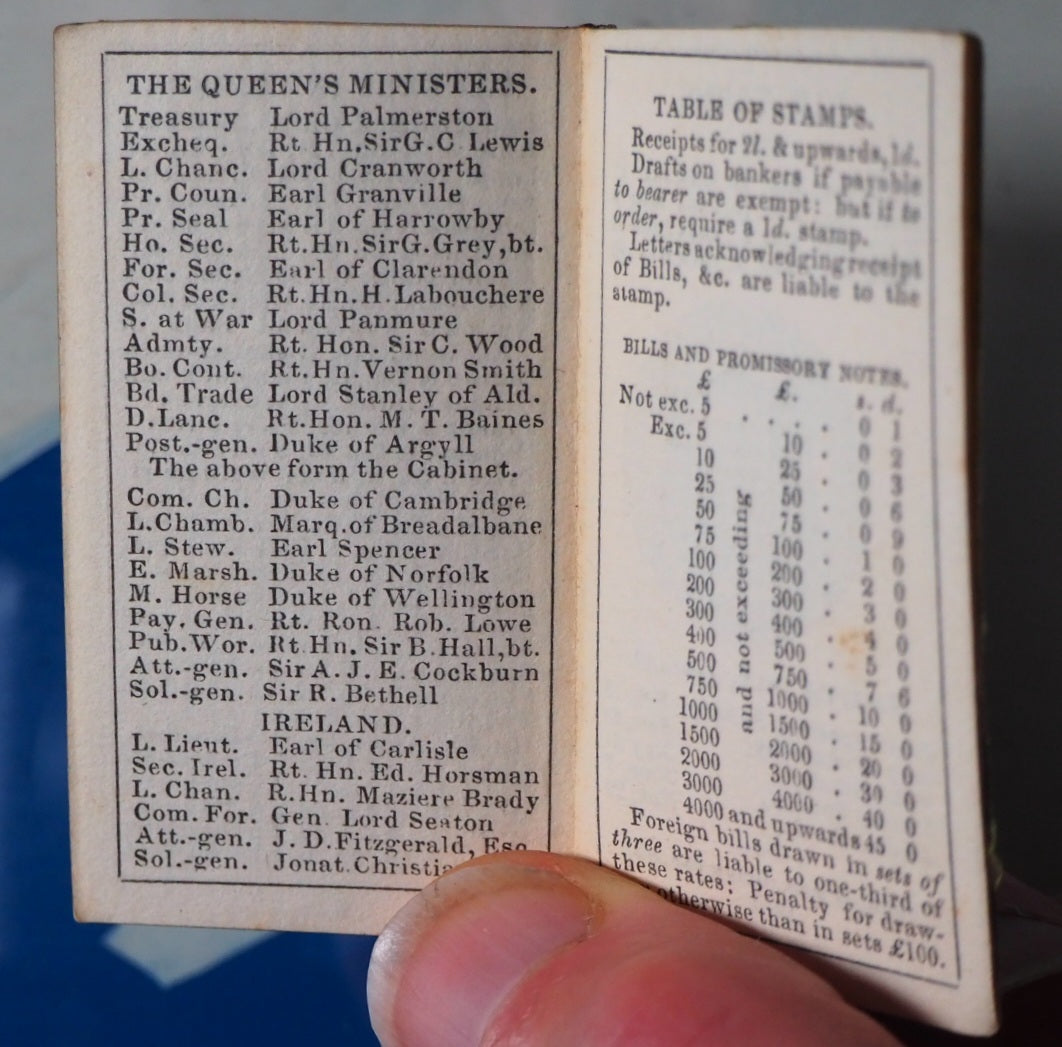 THE QUEEN'S MINISTERS.
Treasury Lord Palmerston
Excheq. Rt Hn.Sir G.C Lewis
L. Chanc. Lord Cranworth
Pr. Coun. Earl Granville
Pr. Seal Earl of Harrowby
Ho. Sec. Rt.Hn.Sir G.Grey,bt.
For. Sec. Earl of Clarendon
Col. Sec. Rt.Hn.H.Labouchere
S. at War Lord Panmure
Admty. Rt. Hon. Sir C. Wood
Bo. Cont. Rt.Hn.Vernon Smith
Bd. Trade Lord Stanley of Ald.
D.Lanc. Rt.Hon. M. T. Baines
Post.-gen. Duke of Argyll
The above form the Cabinet.
Com. Ch. Duke of Cambridge
L.Chamb. Marq.of Breadalbane
L. Stew. Earl Spencer
E. Marsh. Duke of Norfolk
M. Horse Duke of Wellington
Pay. Gen. Rt. Ron. Rob. Lowe
Pub.Wor. Rt.Hn. Sir B.Hall,bt.
Att.-gen. Sir A. J. E. Cockburn
Sol.-gen. Sir R. Bethell
IRELAND.
L. Lieut. Earl of Carlisle
Sec. Irel. Rt. Hn. Ed. Horsman
L. Chan. R.Hn. Maziere Brady
Com. For. Gen. Lord Seaton
Att.-gen. J. D.Fitzgerald, Esq
Sol.-gen. Jonat.Christia
TABLE OF STAMPS.
Receipts for 2l. & upwards, 1d.
Drafts on bankers if payable
to bearer are exempt: but if to
order, require a 1d. stamp.
Letters acknowledging receipt
of Bills, &c. are liable to the
stamp.
BILLS AND PROMISSORY NOTES.
£ £. s. d.
Not exc. 5 . . . . 0 1
Exc. 5 10 . 0 2
10 25 . 0 3
25 50 . 0 6
50 75 . 0 9
75 100 . 1 0
100 200 . 2 0
200 300 . 3 0
300 400 . 4 0
400 500 . 5 0
500 750 . 7 6
750 1000 . 10 0
1000 1500 . 15 0
1500 2000 . 20 0
2000 3000 . 30 0
3000 4000 . 40 0
4000 and upwards 45 0
and not exceeding
Foreign bills drawn in sets of
three are liable to one-third of
these rates; Penalty for draw-
otherwise than in sets £100.